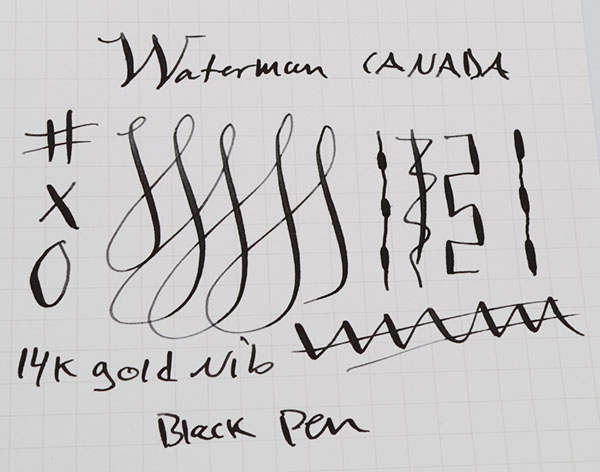 Waterman CANADA
#
X
O
14K gold Nib
Black Pen